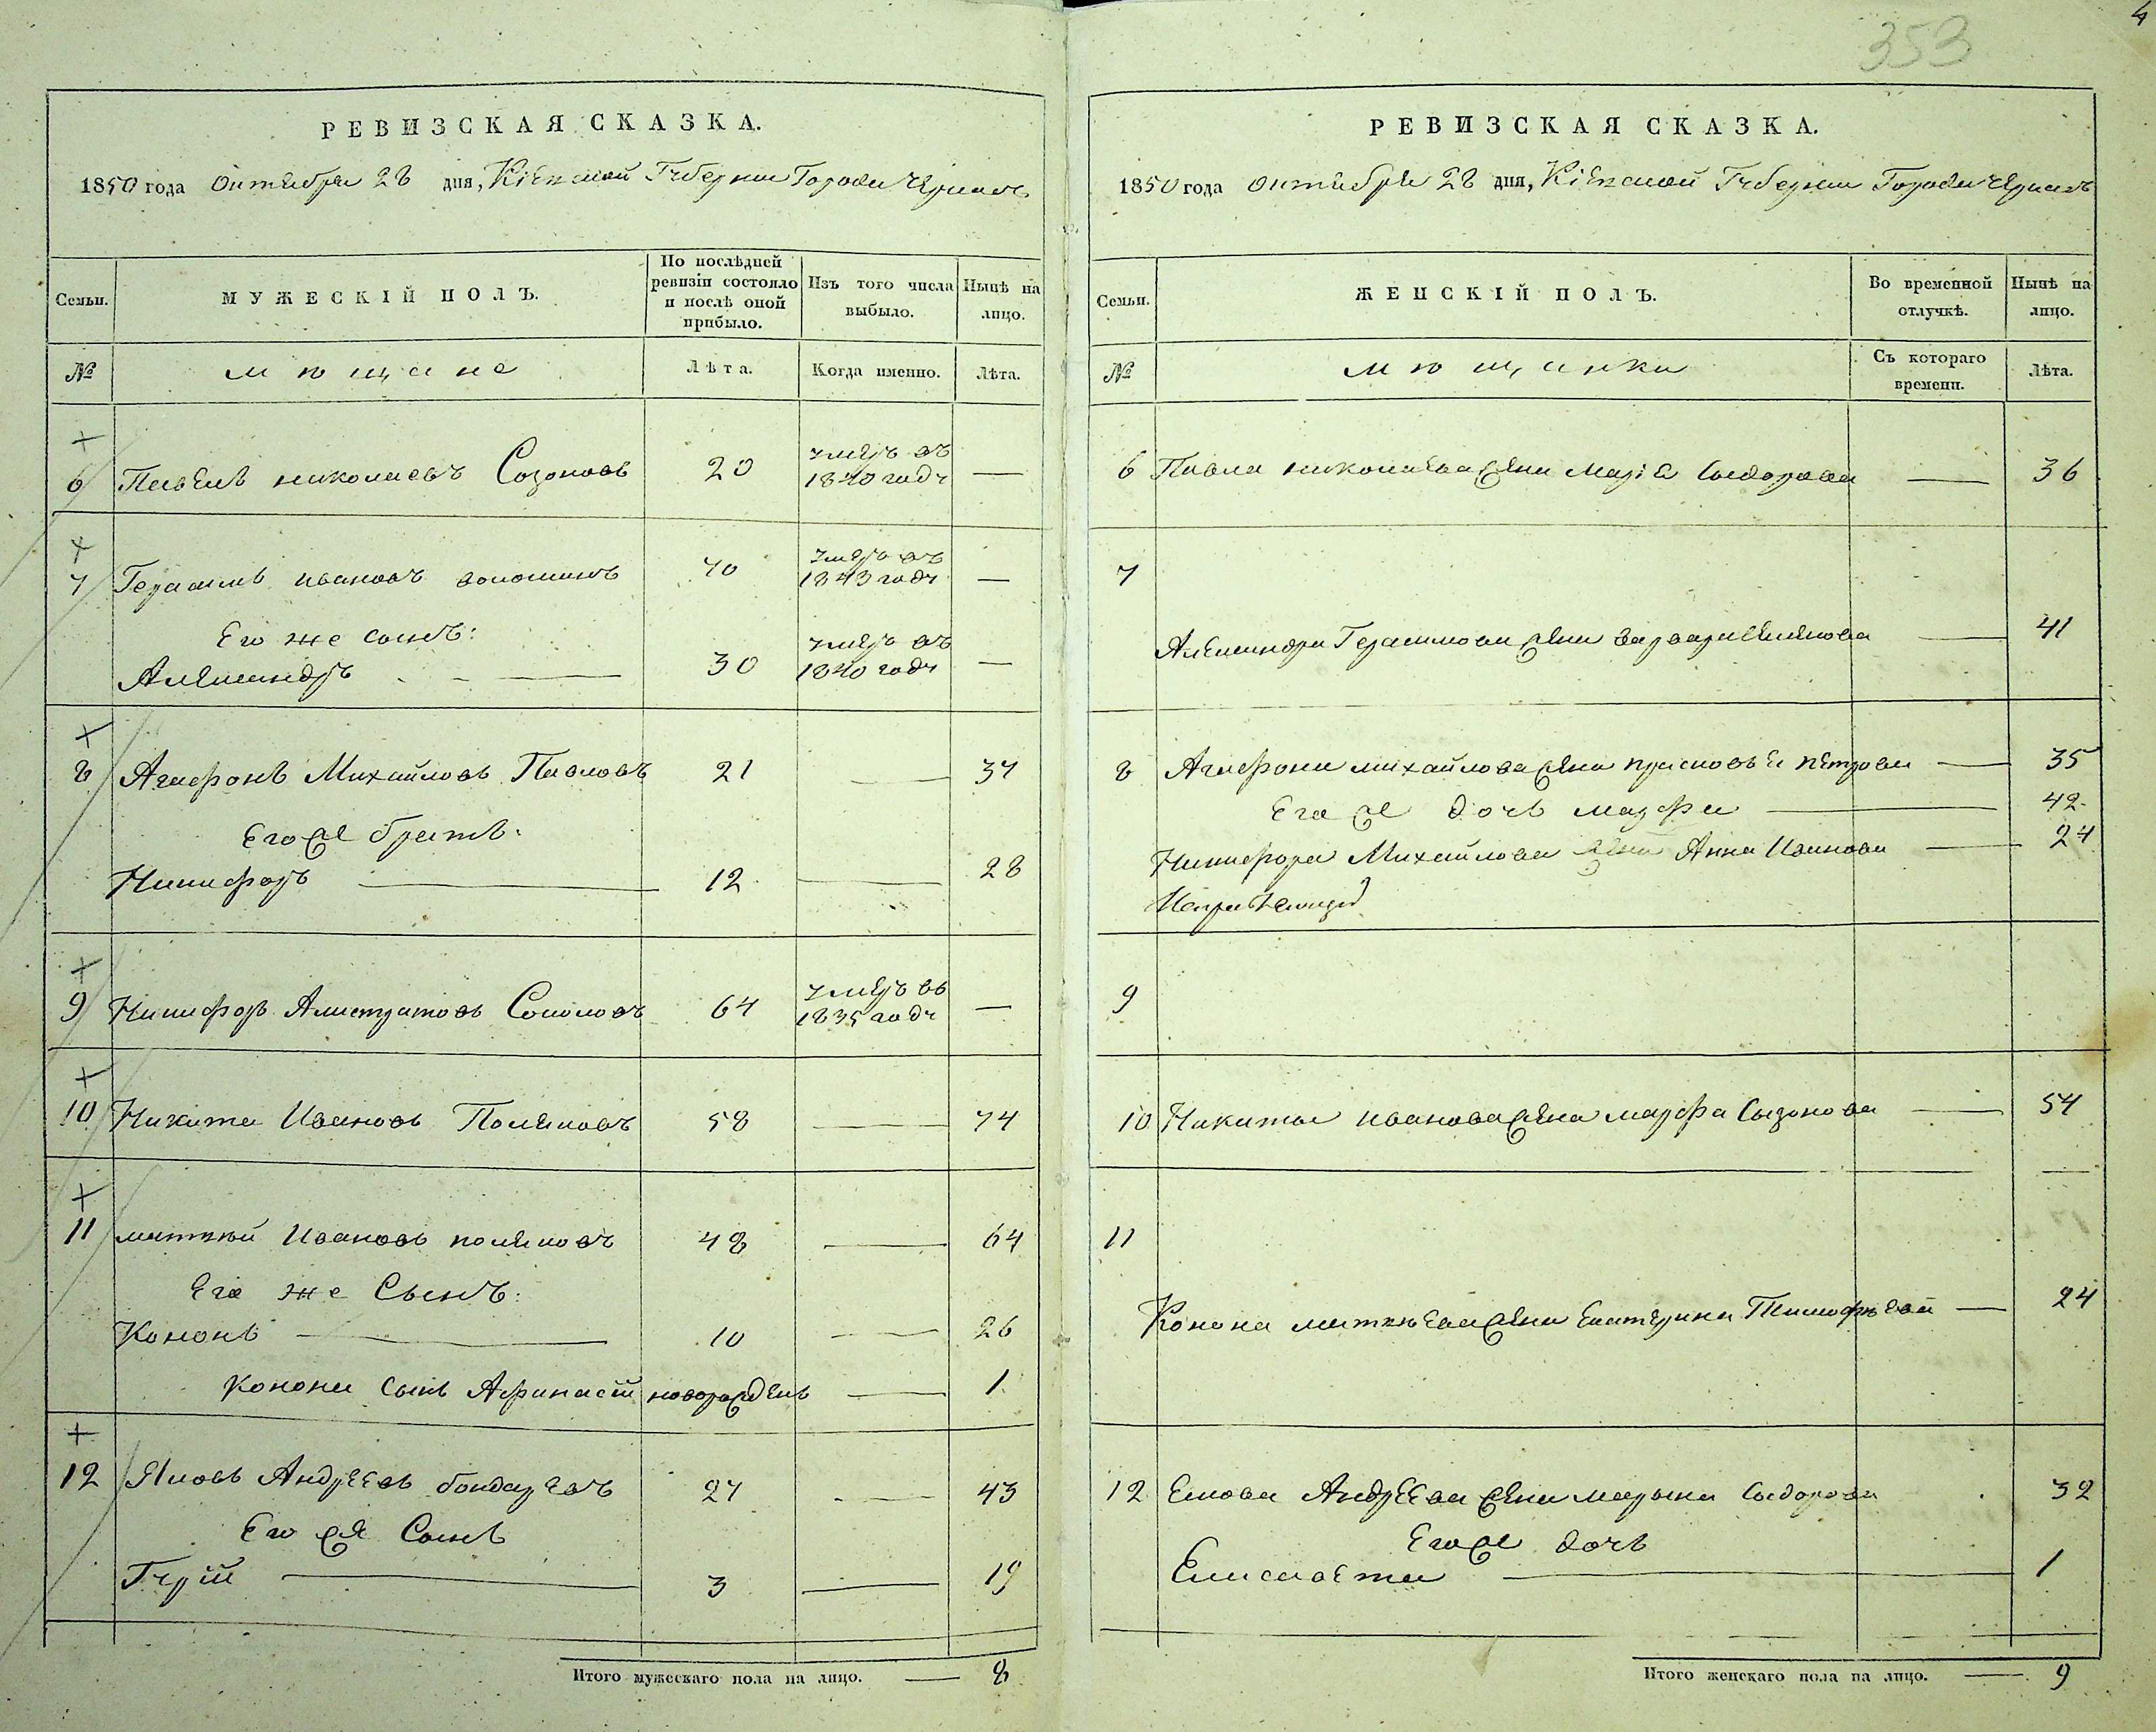 4
353
РЕВИЗСКАЯ СКАЗКА.
1850 года октября 28 дня, Кіевской Губернии Города Черкасъ
Семьи.
МУЖЕСКІЙ ПОЛЪ.
По послѣдней ревизіи состояло и послѣ оной прибыло.
Изъ того числа выбыло.
Нынѣ на лицо.
№
мѣщане
Лѣта.
Когда именно.
Лѣта.
6 Павелъ николаевъ Созоновъ 20 умеръ въ 1840 году —
7 Герасимъ ивановъ волошинъ 70 умеръ въ 1843 году —
Его же сынъ:
Александръ — 30 умеръ въ 1840 году —
8 Агафонъ Михайловъ Павловъ 21 — 37
Егоже братъ:
Никифоръ — 12 — 28
9 Никифоръ Алистратовъ Соколовъ 64 умеръ въ 1835 году —
10 Никита Ивановъ Поляковъ 58 — 74
11 матвѣй Ивановъ поляковъ 48 — 64
Его же Сынъ:
Кононъ — 10 — 26
Конона сынъ Афанасій новорожденъ — 1
12 Яковъ Андреевъ бондаревъ 27 — 43
Его же Сынъ
Гурій — 3 — 19
Итого мужескаго пола на лицо. — 8
РЕВИЗСКАЯ СКАЗКА.
1850 года октября 28 дня, Кіевской Губернии Города Черкасъ
Семьи.
ЖЕНСКІЙ ПОЛЪ.
Во временной отлучкѣ.
Нынѣ на лицо.
№
мѣщанки
Съ котораго времени.
Лѣта.
6 Павла николаева жена Марія Сыдорова — 36
7
Александра Герасимова жена варвара — 41
8 Агафона михайлова жена прасковья петрова — 35
Его же дочь марфа — 42
Никифора Михайлова жена Анна Иванова — 24
9
10 Никиты иванова жена марфа Сызонова — 54
11
Конона матвѣева жена Екатерина Тимофѣева — 24
12 Якова Андреева жена марына Сыдорова 32
Егоже дочь
Елисавета — 1
Итого женскаго пола на лицо. — 9